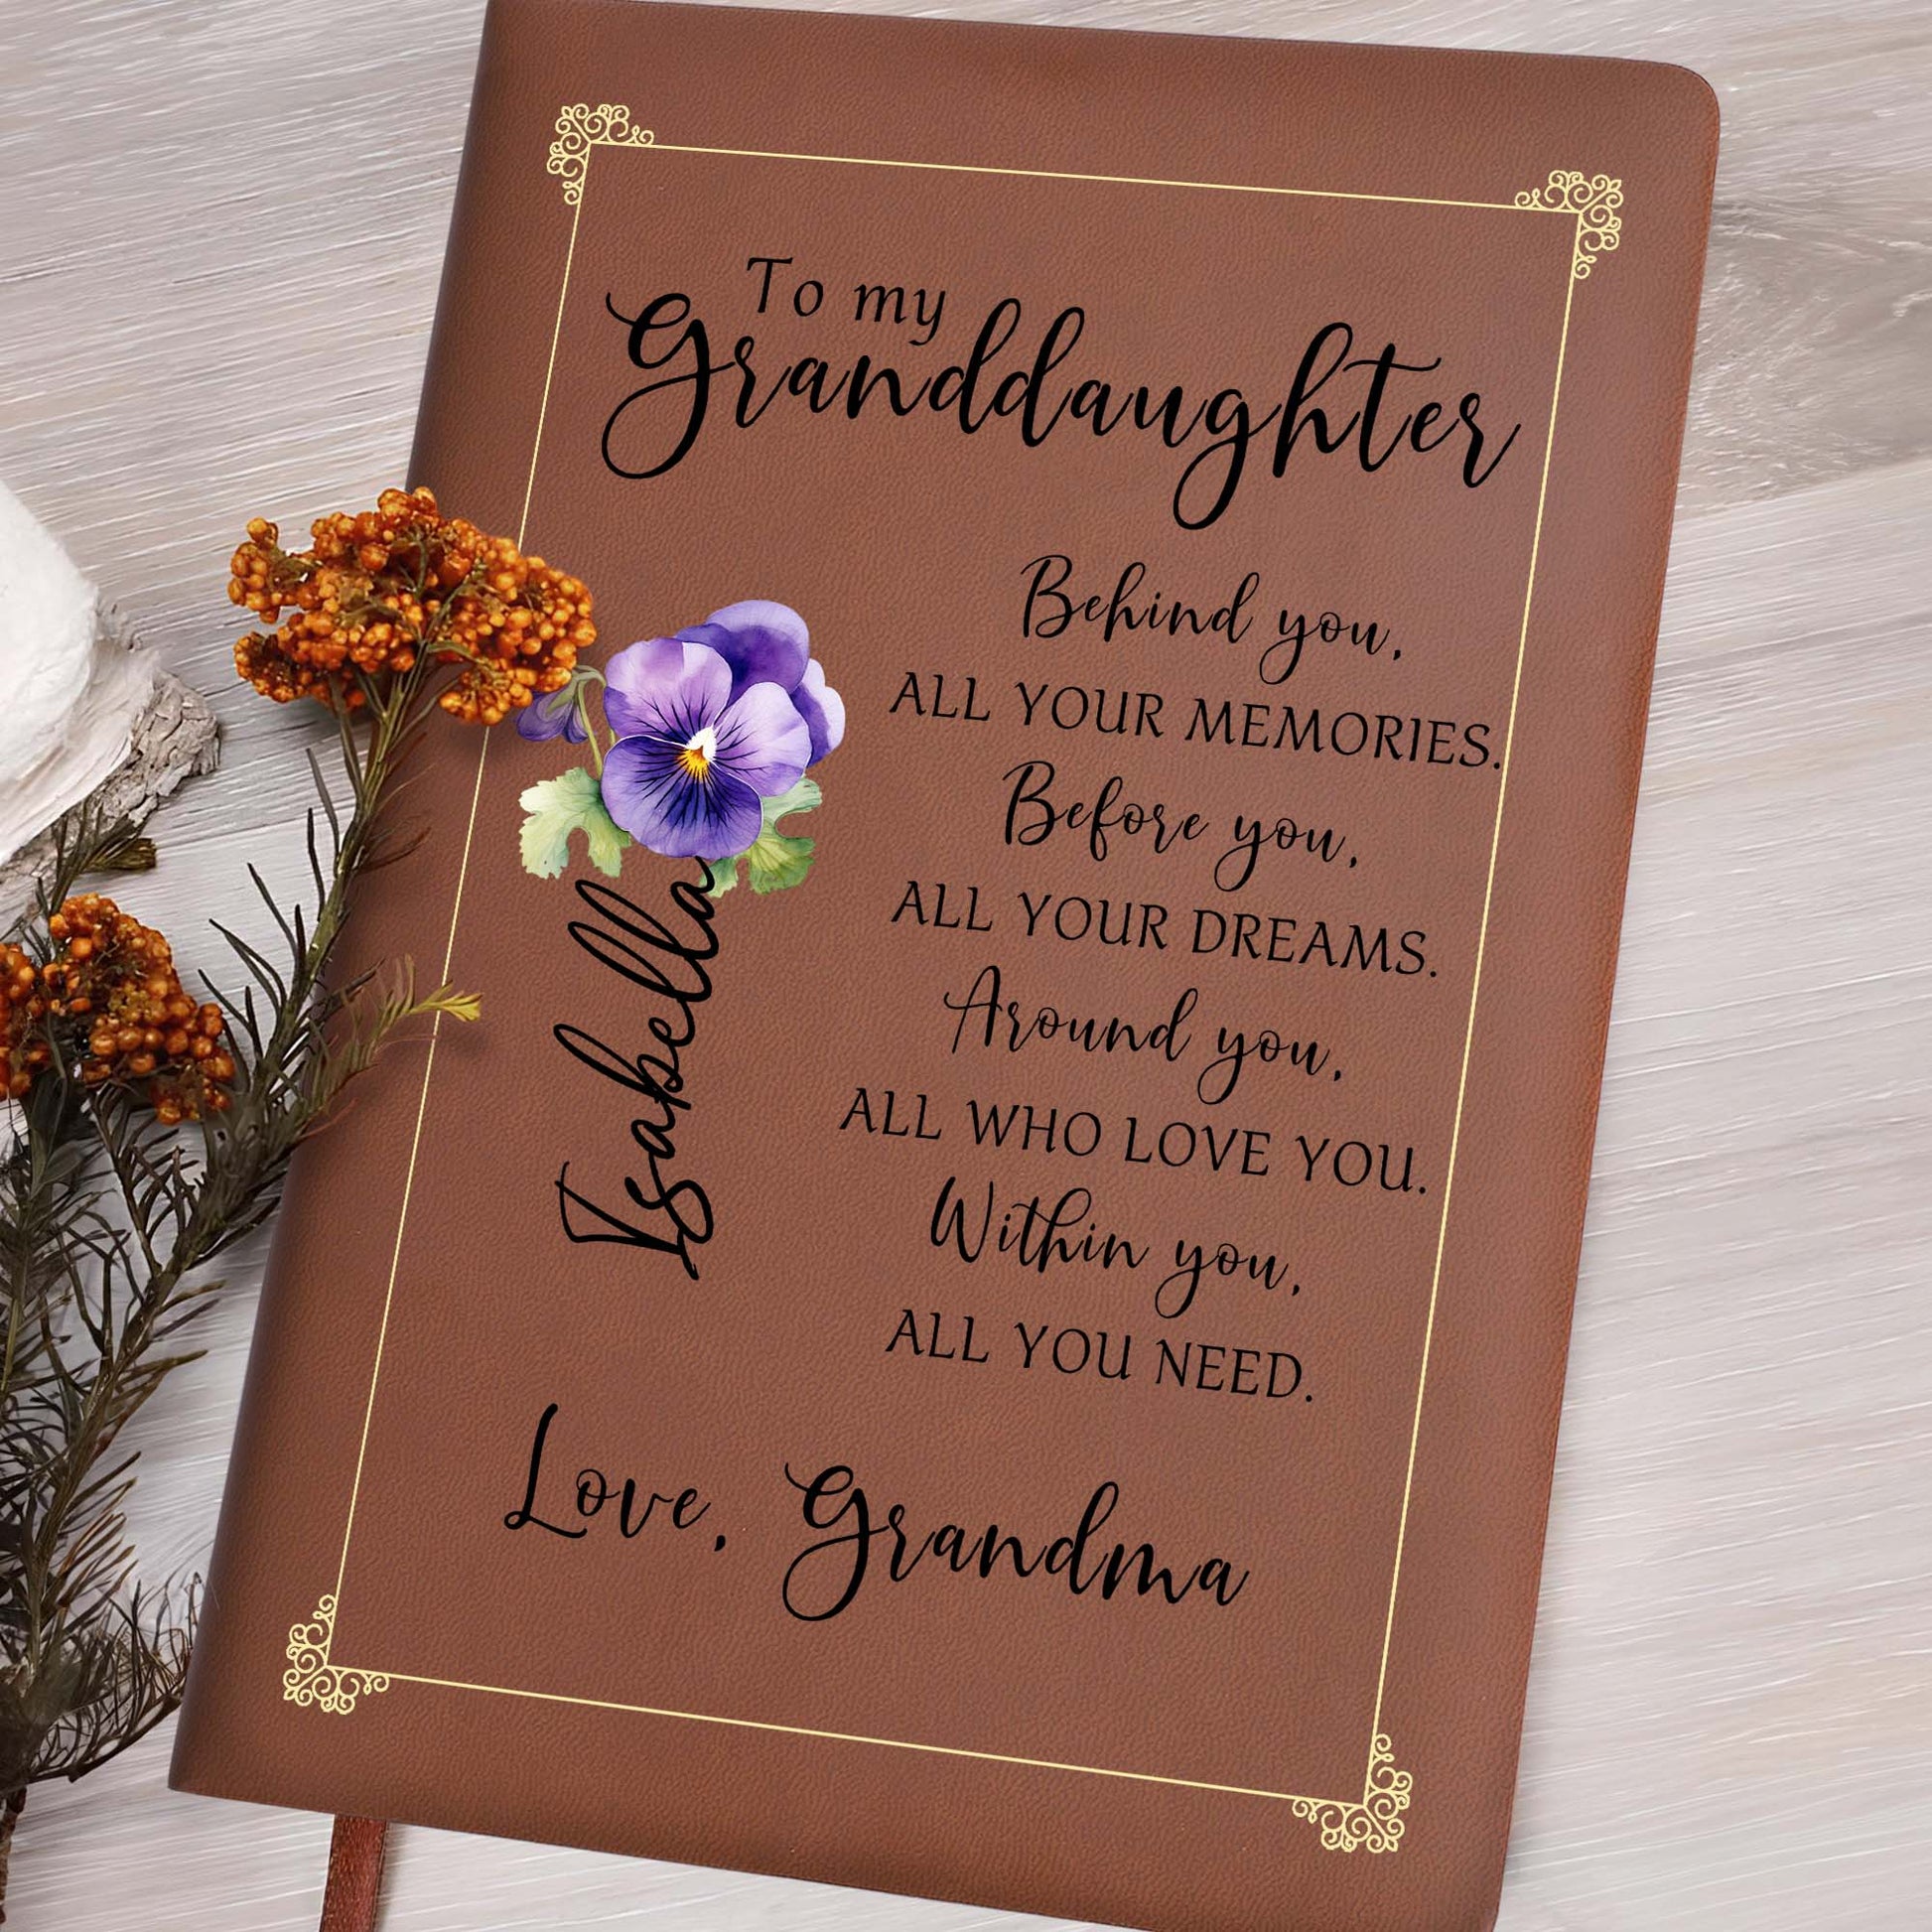 To my
Granddaughter
Behind you,
ALL YOUR MEMORIES.
Before you,
ALL YOUR DREAMS.
Around you,
ALL WHO LOVE YOU.
Within you,
ALL YOU NEED.
Isabella
Love, Grandma